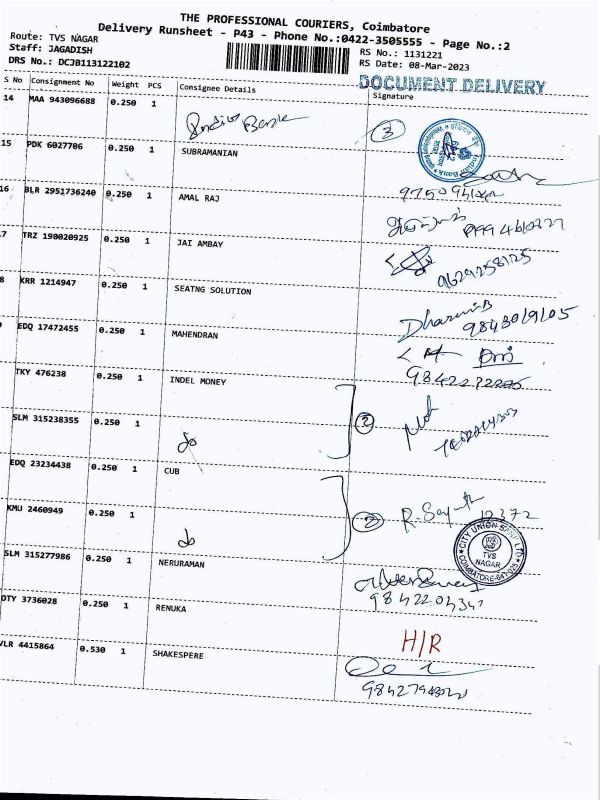 THE PROFESSIONAL COURIERS, Coimbatore
Delivery Runsheet - P43 - Phone No.:0422-3505555 - Page No.:2
Route: TVS NAGAR
Staff: JAGADISH
DRS No.: DCJB113122102
RS No.: 1131221
RS Date: 08-Mar-2023
DOCUMENT DELIVERY
S No Consignment No Weight PCS Consignee Details Signature
14 MAA 943096688 0.250 1 Indian Bank 3
15 PDK 6027706 0.250 1 SUBRAMANIAN
16 BLR 2951736240 0.250 1 AMAL RAJ
7 TRZ 190020925 0.250 1 JAI AMBAY
9629258125
8 KRR 1214947 0.250 1 SEATNG SOLUTION
9843019105
9 EDQ 17472455 0.250 1 MAHENDRAN
TKY 476238 0.250 1 INDEL MONEY
2
SLM 315238355 0.250 1 do
EDQ 23234438 0.250 1 CUB
12372
KMU 2460949 0.250 1 do 2
CITY UNION BANK LTD
TVS
NAGAR
COIMBATORE-641 025
SLM 315277986 0.250 1 NERURAMAN
OTY 3736028 0.250 1 RENUKA
H/R
VLR 4415864 0.530 1 SHAKESPERE